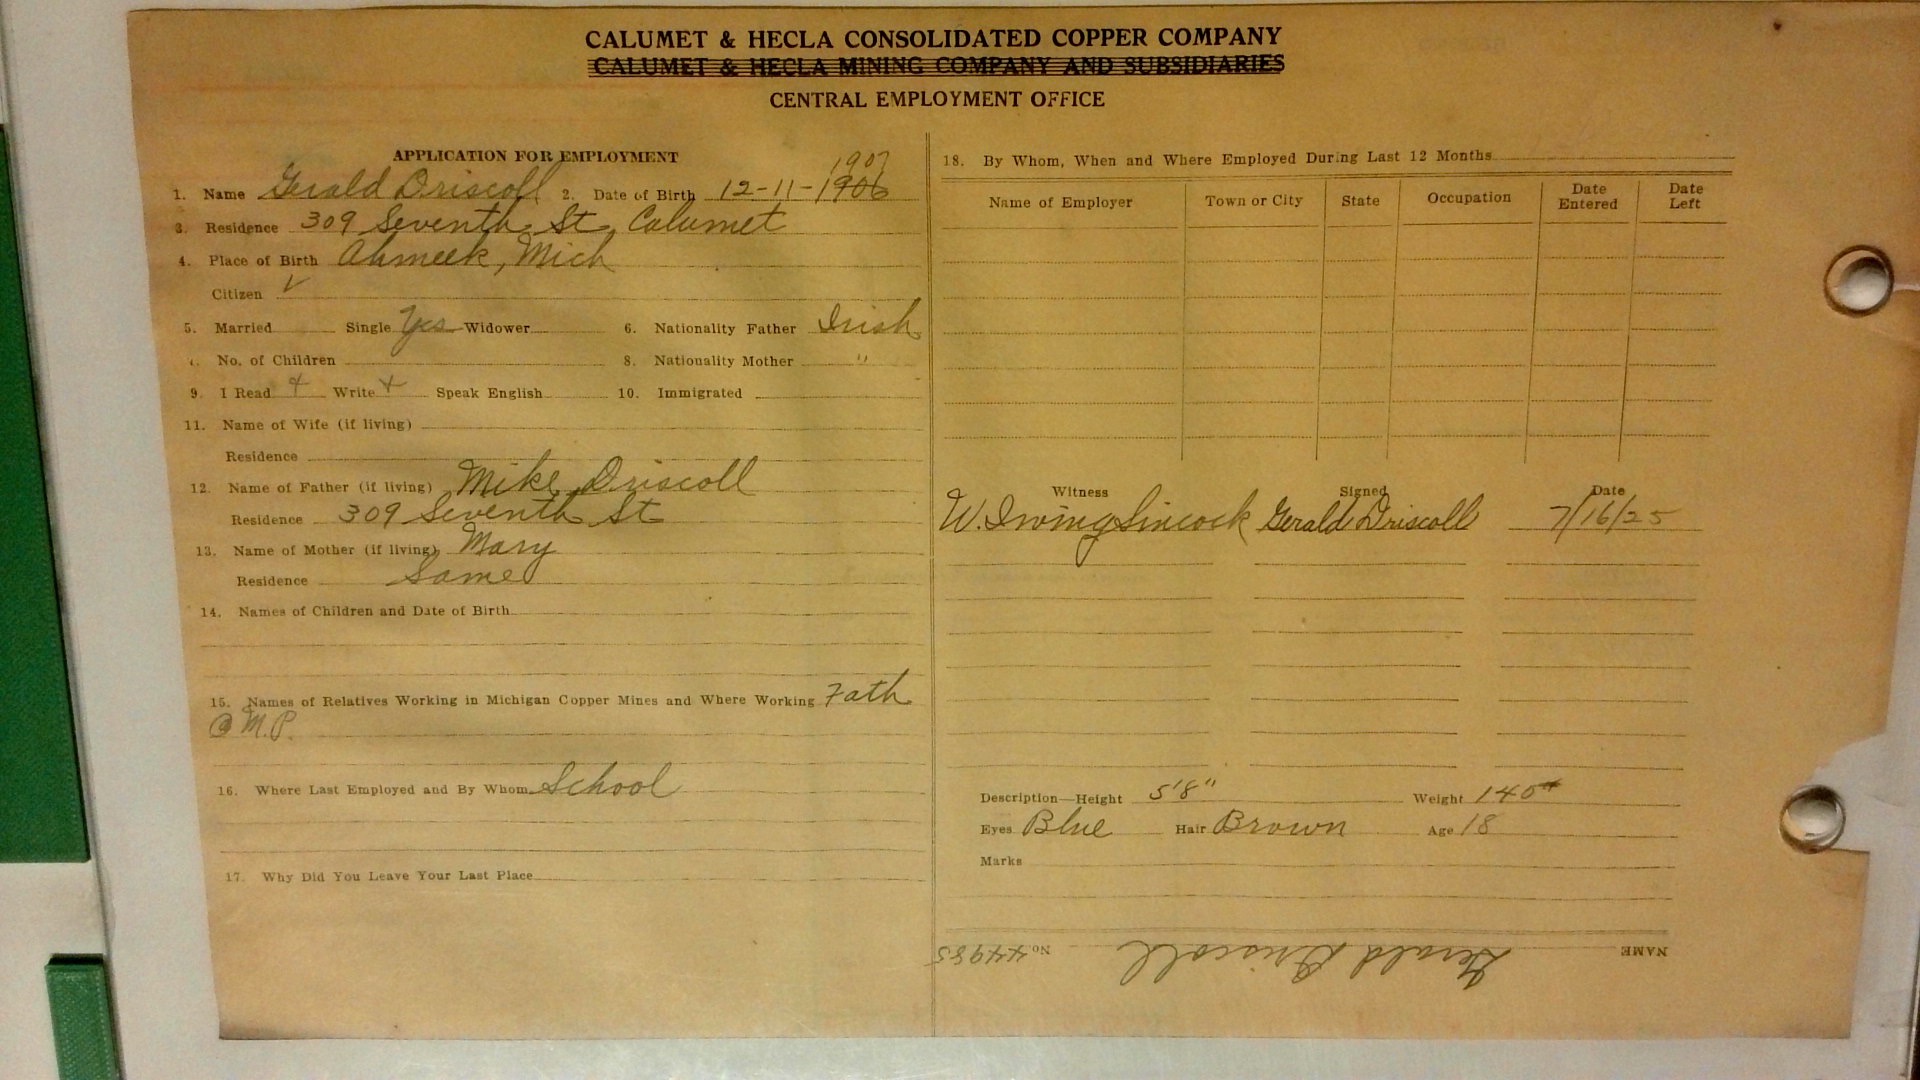 CALUMET & HECLA CONSOLIDATED COPPER COMPANY
CALUMET & HECLA MINING COMPANY AND SUBSIDIARIES
CENTRAL EMPLOYMENT OFFICE
APPLICATION FOR EMPLOYMENT
1907
1. Name Gerald Driscoll 2. Date of Birth 12-11-1906
3. Residence 309 Seventh St, Calumet
4. Place of Birth Ahmeek, Mich
Citizen ✓
5. Married Single Yes Widower 6. Nationality Father Irish
No. of Children 8. Nationality Mother "
9. I Read + Write + Speak English 10. Immigrated
11. Name of Wife (if living)
Residence
12. Name of Father (if living) Mike Driscoll
Residence 309 Seventh St
13. Name of Mother (if living) Mary
Residence Same
14. Names of Children and Date of Birth
15. Names of Relatives Working in Michigan Copper Mines and Where Working Fath
@ M.P.
16. Where Last Employed and By Whom School
17. Why Did You Leave Your Last Place
18. By Whom, When and Where Employed During Last 12 Months
Name of Employer Town or City State Occupation Date Entered Date Left
Witness Signed Date
W. Irving Sincock Gerald Driscoll 7/16/25
Description—Height 5'8" Weight 140#
Eyes Blue Hair Brown Age 18
Marks
NAME Gerald Driscoll No. 44985